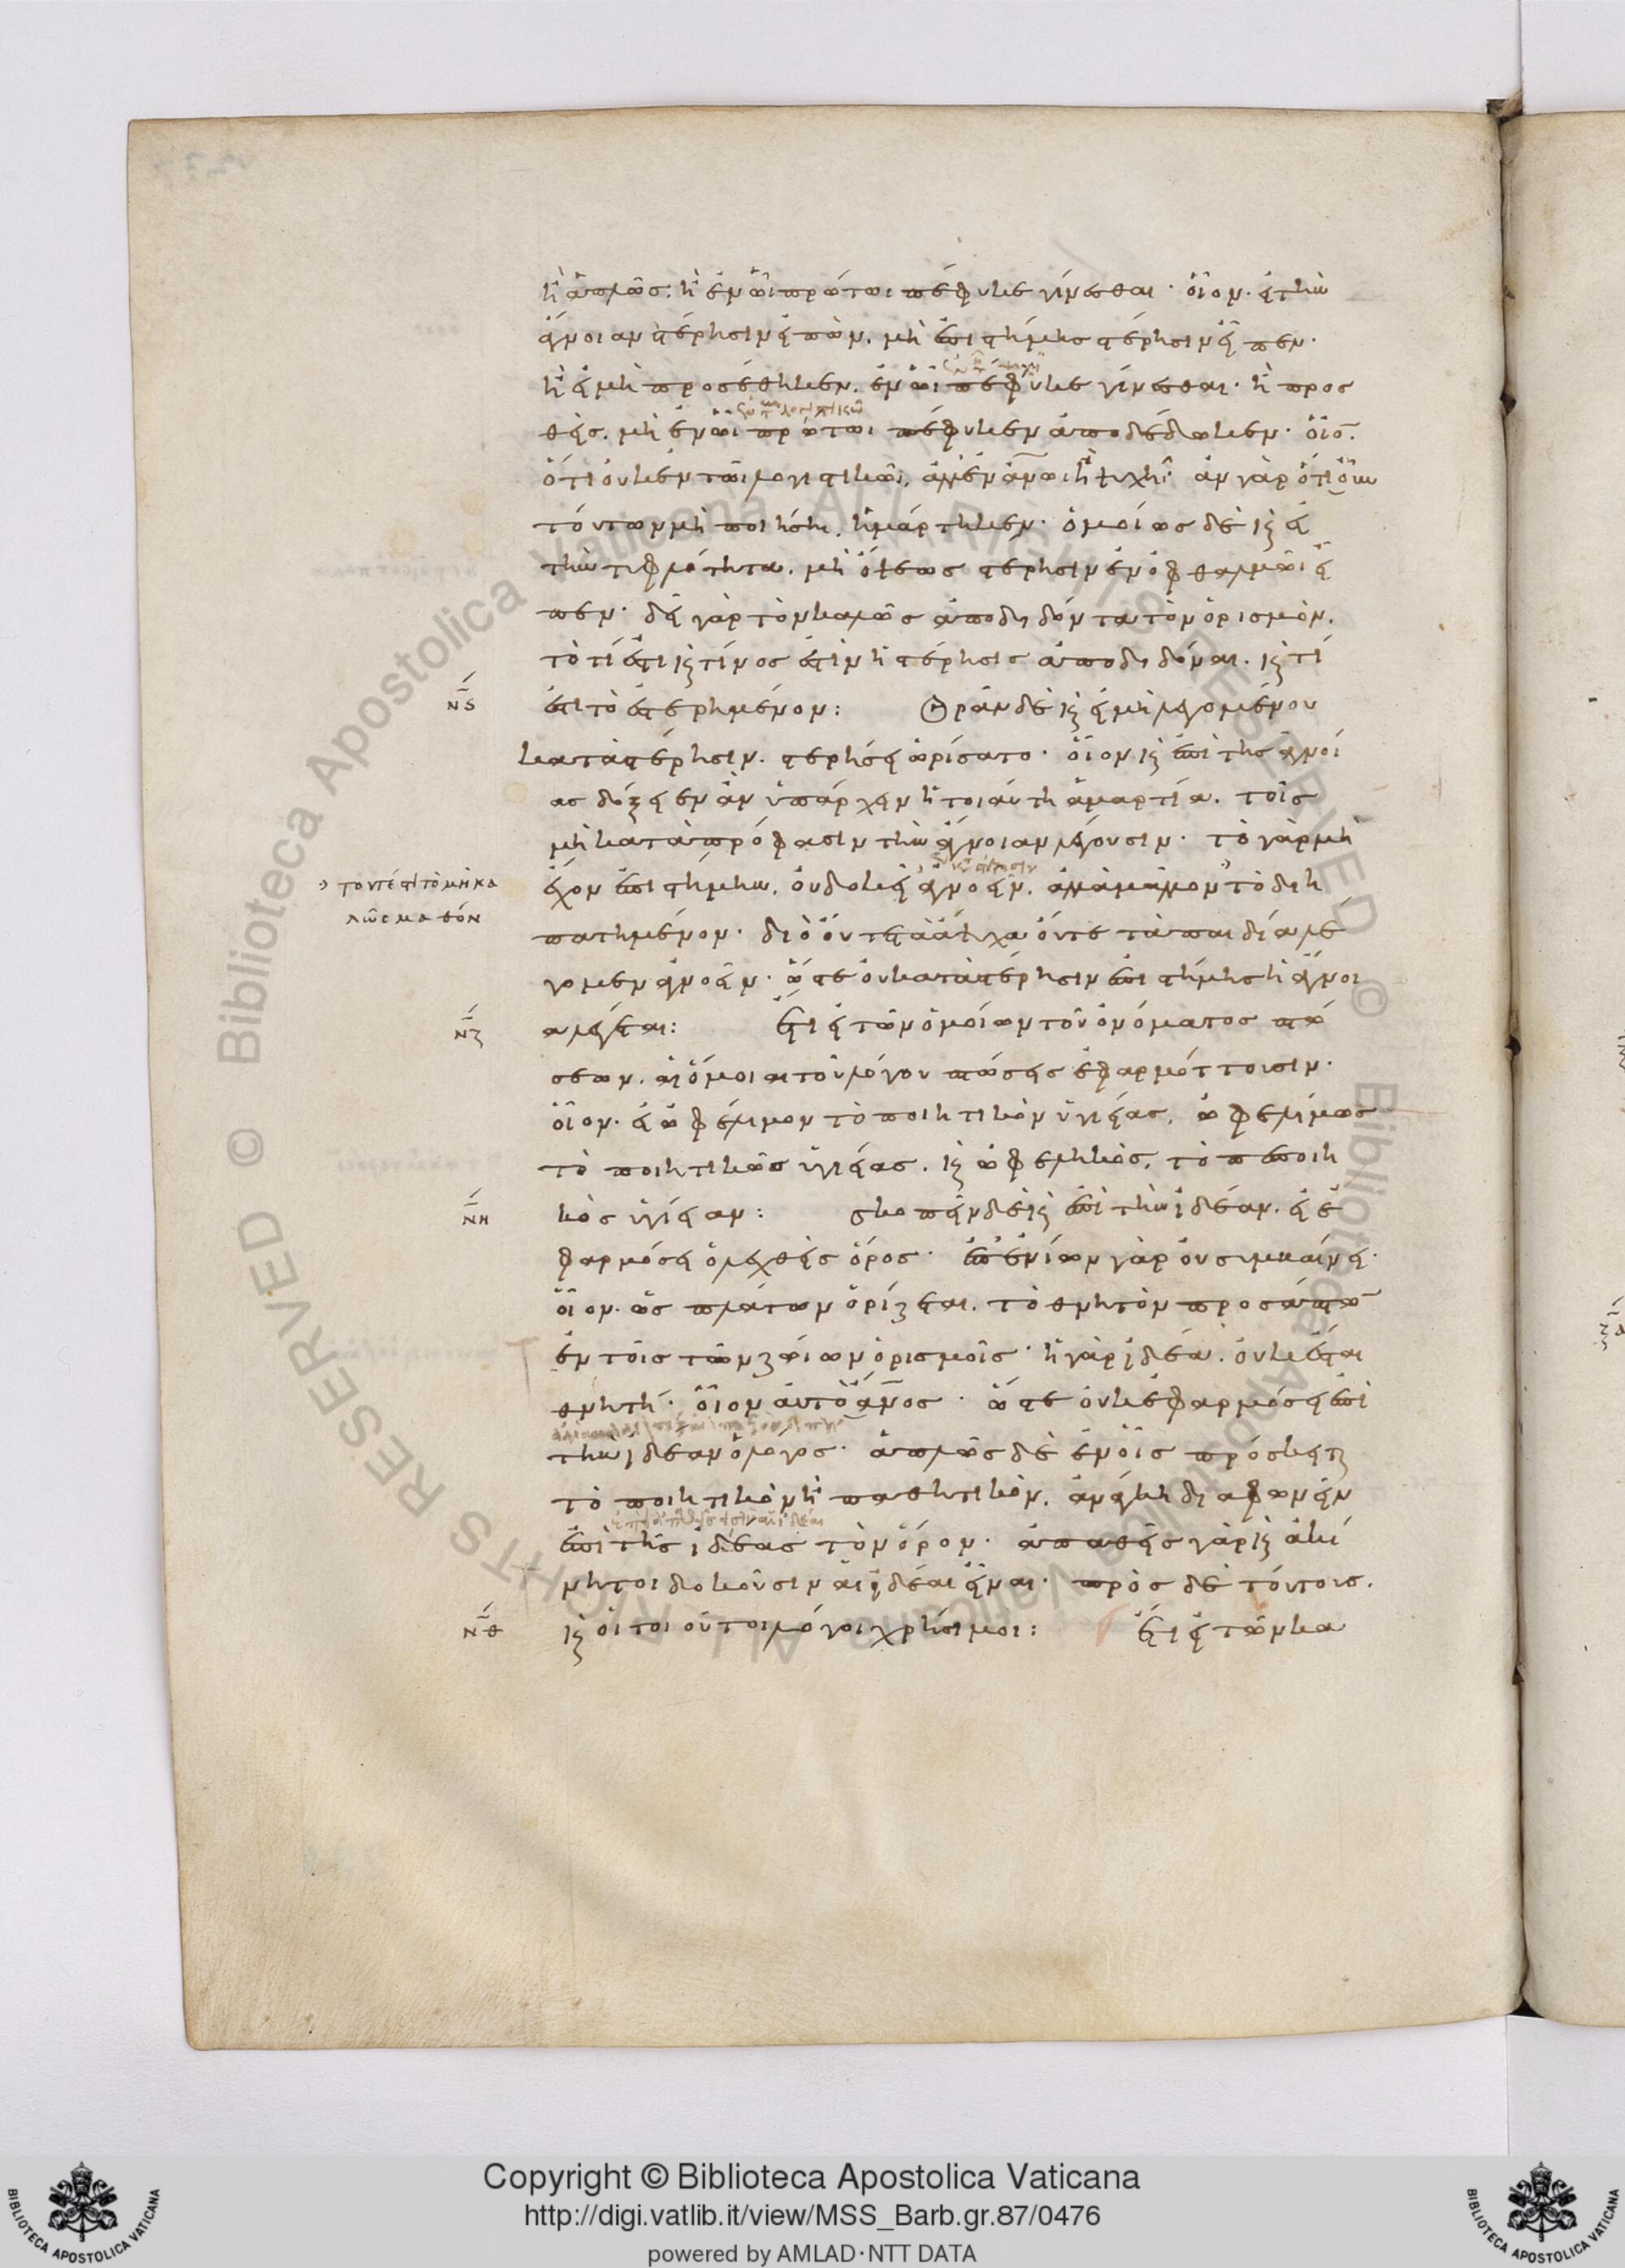 ἢ ἁπλῶς. ἢ ἐν ὧι πρώτωι πέφυκε γίνεσθαι· οἷον. εἰ τὴν
ἄγνοιαν στέρησιν εἰπὼν. μὴ ἐπιστήμης στέρησιν εἶπεν·
ἢ εἰ μὴ προσέθηκεν. ἐν ὧι πέφυκε γίνεσθαι· ἢ προσ
θεὶς. μὴ ἐν ὧι πρώτωι πέφυκεν ἀποδέδωκεν· οἷον.
ὅτι οὐκ ἐν τῶι λογιστικῶι. ἀλλ' ἐν ἀν̅ωι ἢ ψυχῆι· ἂν γὰρ ὁτιοῦν
τούτων μὴ ποιήσηι. ἡμάρτηκεν· ὁμοίως δὲ κ̀ εἰ
τὴν τυφλότητα. μὴ ὄψεως στέρησιν ἐν ὀφθαλμῶι εἶ
πεν· δεῖ γὰρ τὸν καλῶς ἀποδιδόντα τὸν ὁρισμὸν.
τὸ τί ἐστι κ̀ τίνος ἐστὶν ἡ στέρησις ἀποδιδόναι. κ̀ τί
ν̅ϛ ἐστι τὸ ἐστερημένον: Ὁρᾶν δὲ κ̀ εἰ μὴ λεγομένου
κατὰ στέρησιν. στερήσει ὡρίσατο· οἷον κ̀ ἐπὶ τῆς ἀγνοί
ας δόξειεν ἂν ὑπάρχειν ἡ τοιαύτη ἁμαρτία. τοῖς
μὴ κατὰ πρόφασιν τὴν ἄγνοιαν λέγουσιν· τὸ γὰρ μὴ
ἔχον ἐπιστήμην. οὐ δοκεῖ ἀγνοεῖν. ἀλλὰ μᾶλλον τὸ διη
τουτέστι τὸ μὴ κα
λῶς μαθόν
πατημένον· διὸ οὔτε τὰ ἄψυχα οὔτε τὰ παιδία λέ
γομεν ἀγνοεῖν· ὥστε οὐ κατὰ στέρησιν ἐπιστήμης ἡ ἄγνοι
ν̅ζ α λέγεται: Ἔτι εἰ τῶν ὁμοίων τοῦ ὀνόματος πτώ
σεων. αἱ ὅμοιαι τοῦ λόγου πτώσεις ἐφαρμόττουσιν·
οἷον. εἰ ὠφέλιμον τὸ ποιητικὸν ὑγιείας. ὠφελίμως
τὸ ποιητικῶς ὑγιείας. κ̀ ὠφεληκὸς. τὸ πεποιη
ν̅η κὸς ὑγίειαν: Σκοπεῖν δὲ κ̀ ἐπὶ τὴν ἰδέαν. εἰ ἐ
φαρμόσει ὁ λεχθεὶς ὅρος· ἐπ' ἐνίων γὰρ οὐ συμβαίνει·
οἷον. ὡς πλάτων ὁρίζεται. τὸ θνητὸν προσάπτων
ἐν τοῖς τῶν ζώιων ὁρισμοῖς· ἡ γὰρ ἰδέα. οὐκ ἔσται
θνητή· οἷον αὐτοάν̅ος· ὥστε οὐκ ἐφαρμόσει ἐπὶ
τὴν ἰδέαν ὁ λόγος· ἁπλῶς δὲ ἐν οἷς πρόσκειται
τὸ ποιητικὸν ἢ παθητικὸν. ἀνάγκη διαφωνεῖν
ἐπὶ τῆς ἰδέας τὸν ὅρον· ἀπαθεῖς γὰρ κ̀ ἀκί
νητοι δοκοῦσιν αἱ ἰδέαι εἶναι· πρὸς δὲ τούτους.
ν̅θ κ̀ οἱ τοιοῦτοι λόγοι χρήσιμοι: Ἔτι εἰ τῶν κα
Copyright © Biblioteca Apostolica Vaticana
http://digi.vatlib.it/view/MSS_Barb.gr.87/0476
powered by AMLAD·NTT DATA